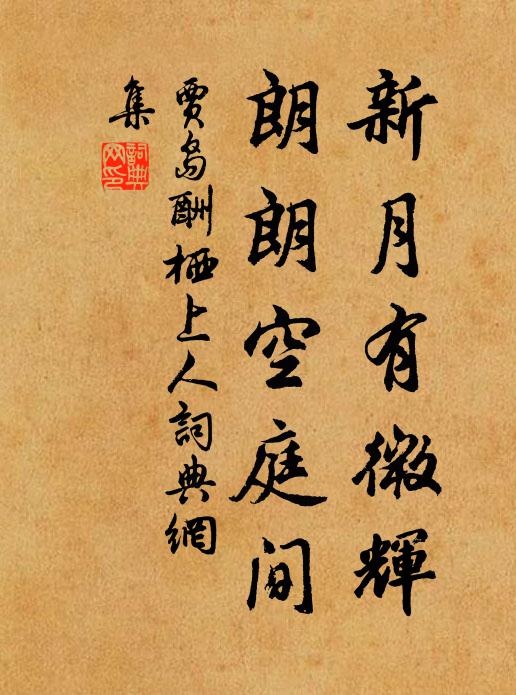 新月有微輝
朗朗空庭間
賈島酬栖上人詞典網
集
詞典網印